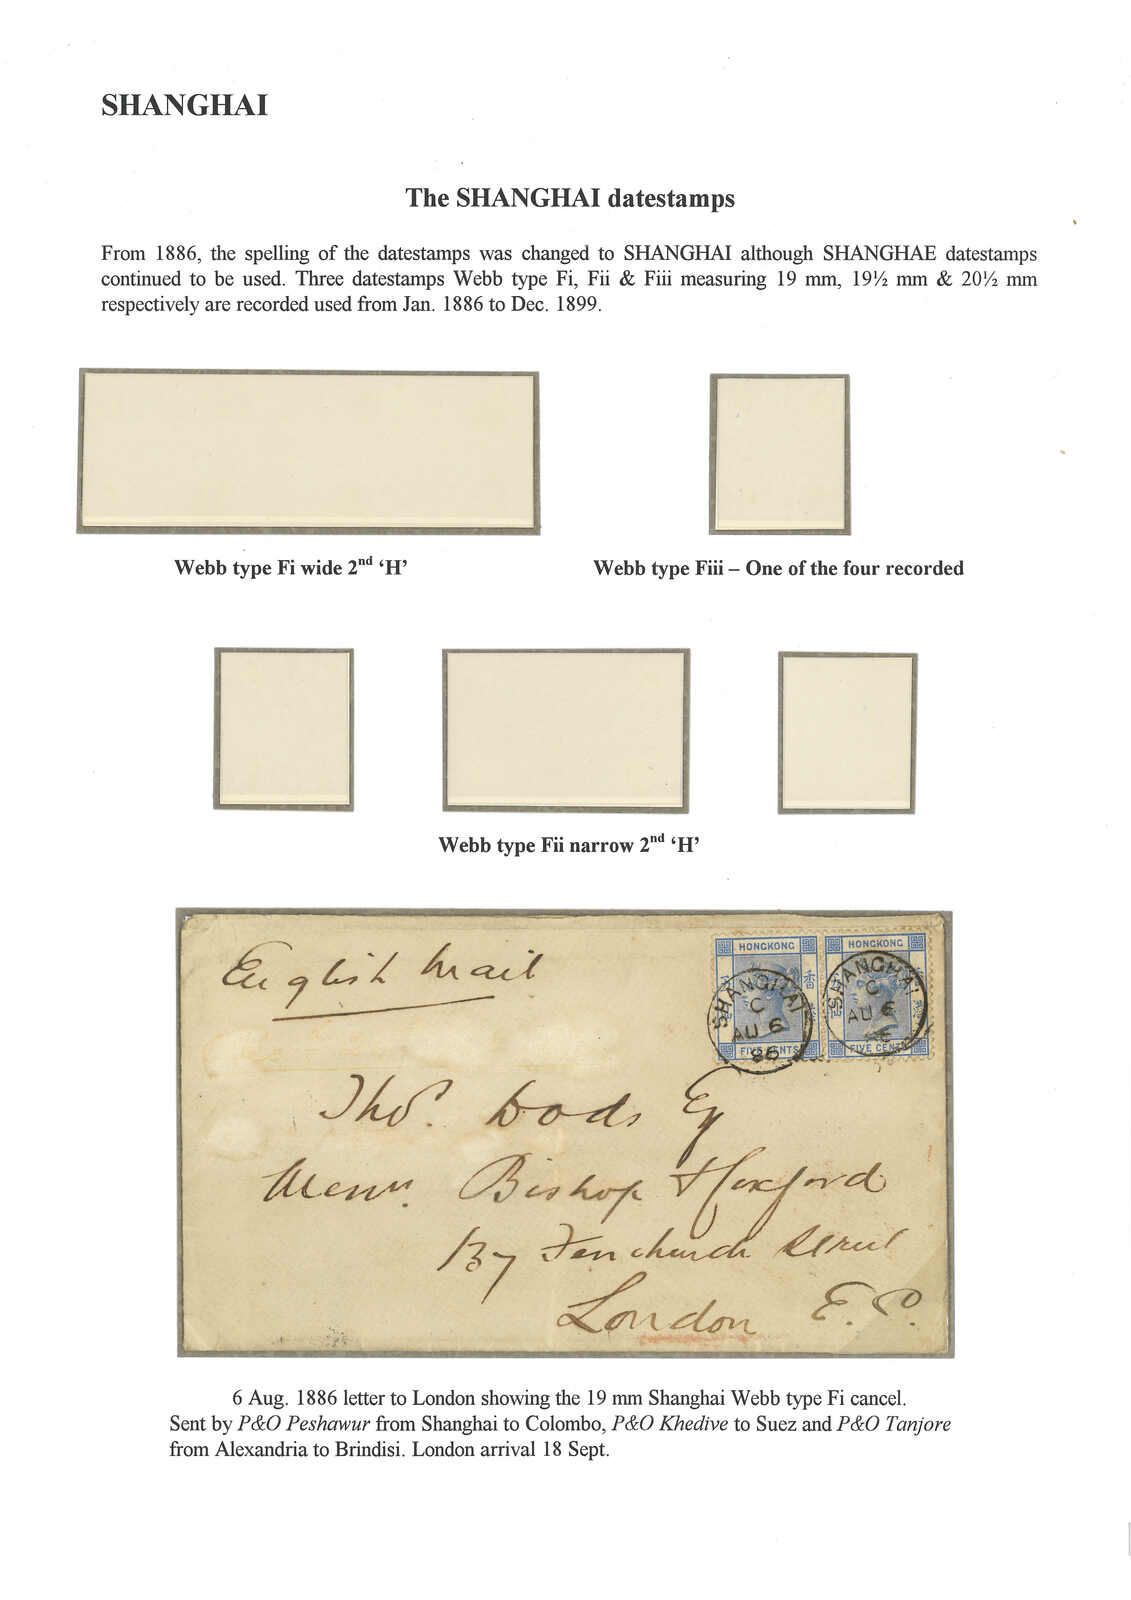 SHANGHAI
The SHANGHAI datestamps
From 1886, the spelling of the datestamps was changed to SHANGHAI although SHANGHAE datestamps
continued to be used. Three datestamps Webb type Fi, Fii & Fiii measuring 19 mm, 19½ mm & 20½ mm
respectively are recorded used from Jan. 1886 to Dec. 1899.
Webb type Fi wide 2nd ‘H’
Webb type Fiii – One of the four recorded
Webb type Fii narrow 2nd ‘H’
English Mail
HONGKONG
HONGKONG
SHANGHAI
C
AU 6
86
SHANGHAI
C
AU 6
86
FIVE CENTS
FIVE CENTS
Thos. Dods Esq
Messrs. Bishop Hoxford
137 Fenchurch Street
London E.C.
6 Aug. 1886 letter to London showing the 19 mm Shanghai Webb type Fi cancel.
Sent by P&O Peshawur from Shanghai to Colombo, P&O Khedive to Suez and P&O Tanjore
from Alexandria to Brindisi. London arrival 18 Sept.